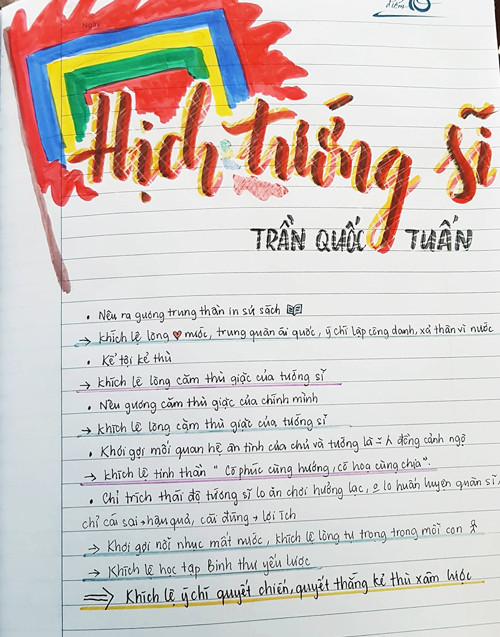 điểm
Ngày
Hịch tướng sĩ
TRẦN QUỐC TUẤN
• Nêu ra gương trung thần in sử sách
→ khích lệ lòng ❤ nước, trung quân ái quốc, ý chí lập công danh, xả thân vì nước
• Kể tội kẻ thù
→ khích lệ lòng căm thù giặc của tướng sĩ
• Nêu gương căm thù giặc của chính mình
→ khích lệ lòng căm thù giặc của tướng sĩ
• Khơi gợi mối quan hệ ân tình của chủ và tướng là đồng cảnh ngộ
→ khích lệ tinh thần "Có phúc cùng hưởng, có họa cùng chịu".
• Chỉ trích thái độ tướng sĩ lo ăn chơi hưởng lạc, o lo huấn luyện quân sĩ,
chỉ cái sai → hậu quả, cái đúng → lợi ích
→ Khơi gợi nỗi nhục mất nước, khích lệ lòng tự trọng trong mỗi con
→ Khích lệ học tập Binh thư yếu lược
⇒ Khích lệ ý chí quyết chiến, quyết thắng kẻ thù xâm lược